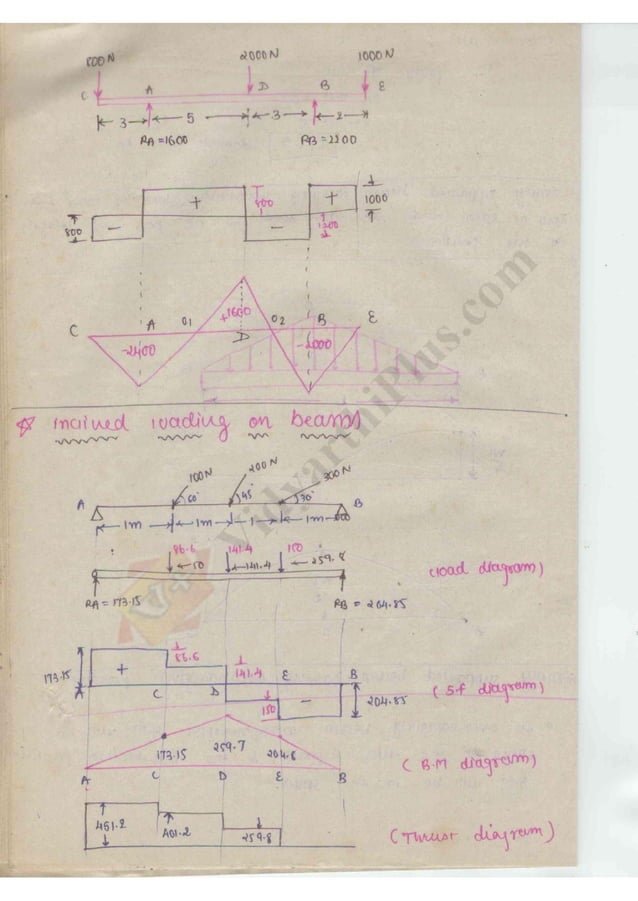 800N 2000N 1000N
C A D B E
3 5 3 2
RA=1600 RB=2200
+ 800 + 1000
800 - - 1200
C A O1 +1600 O2 B E
-2400 D -2000
☆ Inclined loading on beams
100N 200N 300N
A 60° 45° 30° B
1m 1m 1 1m
86.6 141.4 150
50 141.4 259.8 (load diagram)
RA=173.15 RB=204.85
173.15 + 86.6 141.4
A C D E B
150 - 204.85 (S.f diagram)
173.15 259.7 204.8 (B.M diagram)
A C D E B
461.2 401.2 259.8 (Thrust diagram)
VidyarthiPlus.com
V+